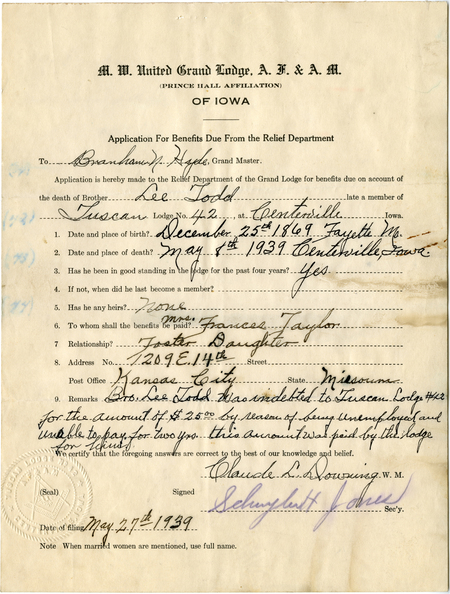 M. W. United Grand Lodge, A. F. & A. M.
(PRINCE HALL AFFILIATION)
OF IOWA
Application For Benefits Due From the Relief Department
To Branham N Hyde, Grand Master.
Application is hereby made to the Relief Department of the Grand Lodge for benefits due on account of
the death of Brother Lee Todd late a member of
Tuscan Lodge No. 42 at Centerville Iowa.
1. Date and place of birth? December 25th 1869 Fayette M.
2. Date and place of death? May 8th 1939 Centerville, Iowa
3. Has been in good standing in the lodge for the past four years? Yes
4. If not, when did he last become a member?
5. Has he any heirs? None
6. To whom shall the benefits be paid? Mrs. Frances Taylor
7 Relationship? Foster Daughter
8. Address No. 1209 E. 14th Street
Post Office Kansas City State Missouri
9 Remarks Bro. Lee Todd was indebted to Tuscan Lodge #42
for the amount of $25.00 by reason of being unemployed and
unable to pay for two yrs. this amount was paid by the lodge
for him.
We certify that the foregoing answers are correct to the best of our knowledge and belief.
Claude L. Downing W. M.
(Seal) Signed
Schuyler H Jones Sec'y.
Date of filing May 27th 1939
Note When married women are mentioned, use full name.